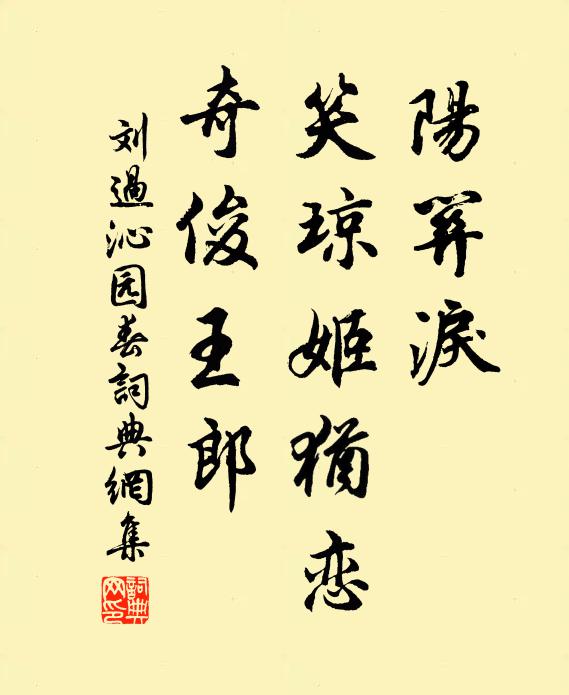 陽關淚
笑琼姬猶恋
奇俊王郎
刘過沁园春詞典網集
詞典
网印